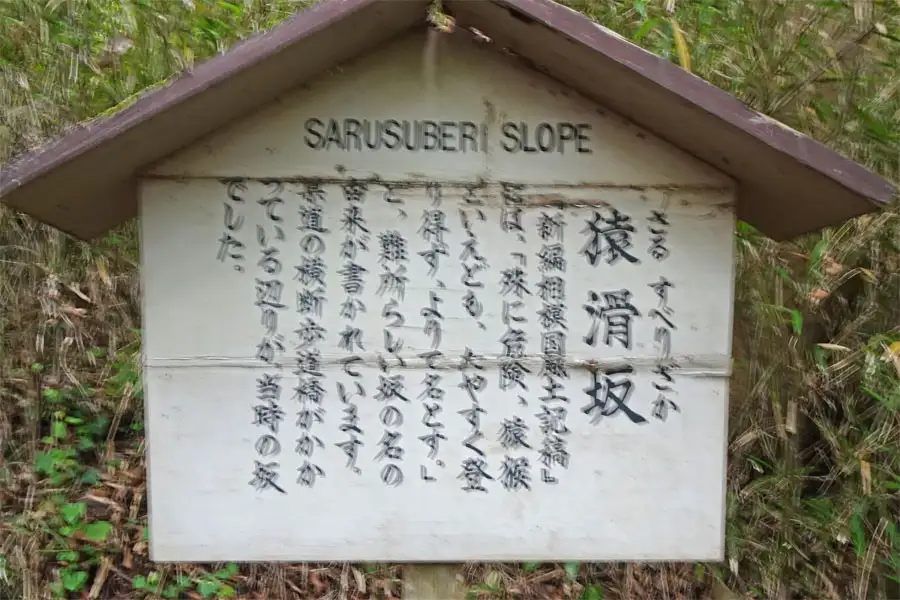 SARUSUBERI SLOPE
さる すべりざか
猿滑坂
新編相模国風土記稿』
には、「殊に危険、猿猴
といえども、たやすく登
り得ず、よりて名とす。」
と、難所らしい坂の名の
由来が書かれています。
県道の横断歩道橋がかか
っている辺りが当時の坂
でした。